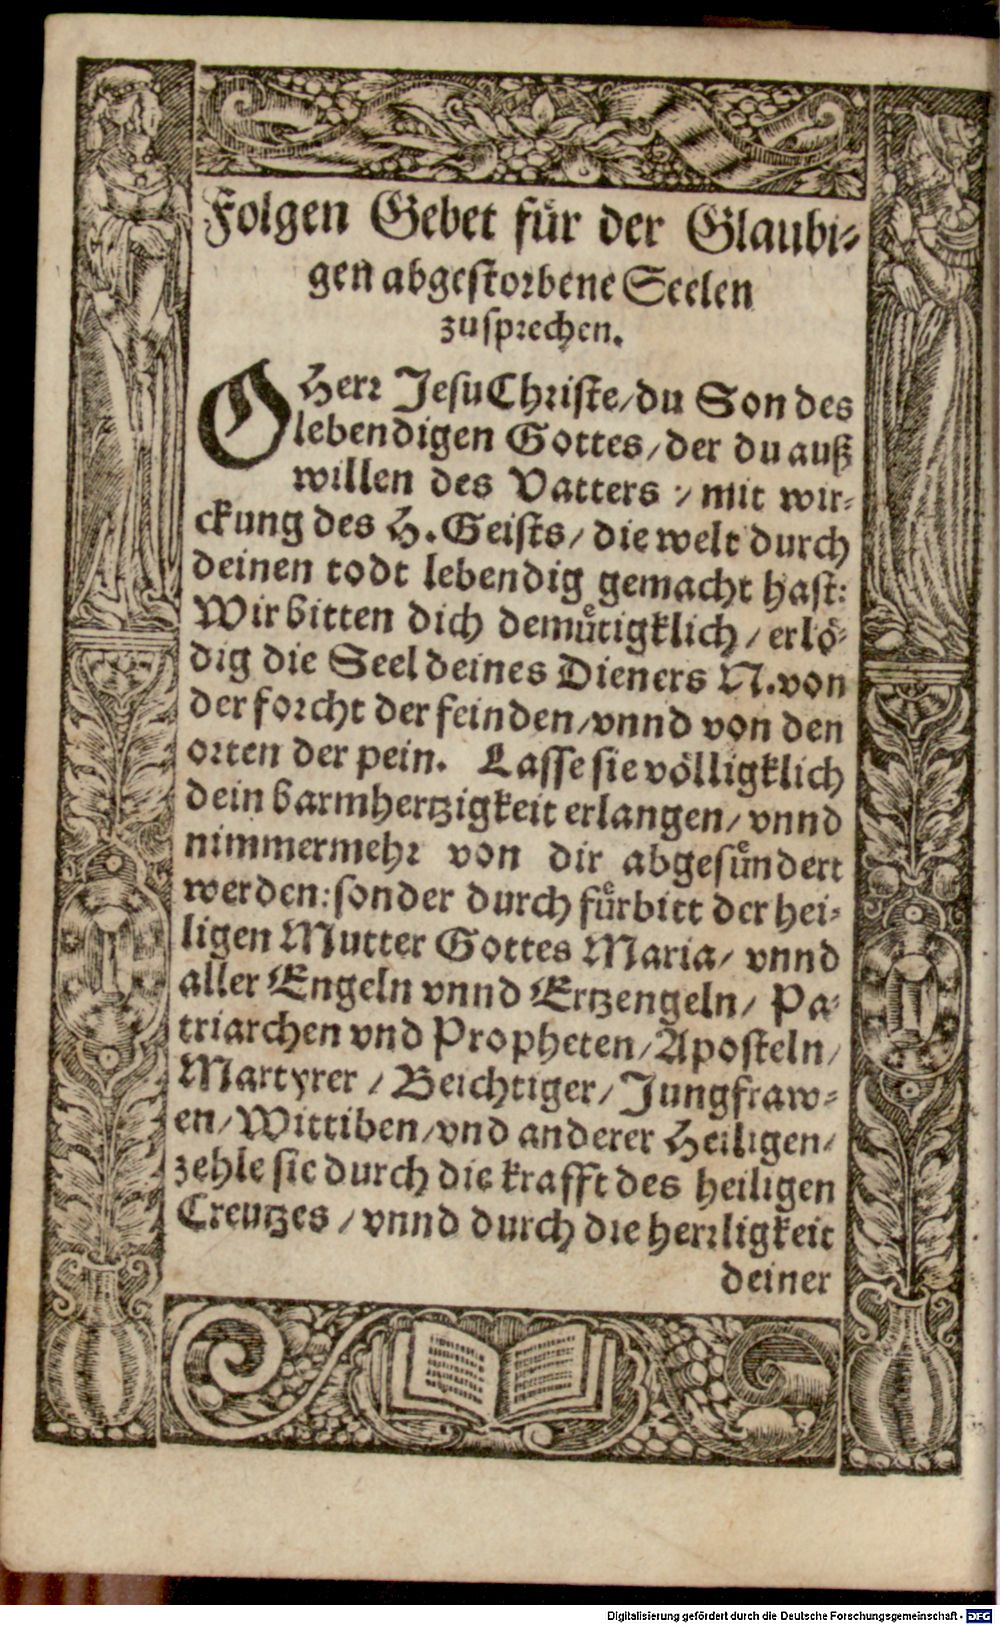 Folgen Gebet fuͤr der Glaubi⸗
gen abgestorbene Seelen
zu sprechen.
O Herr Jesu Christe / du Son des
lebendigen Gottes / der du auß
willen des Vatters / mit wir⸗
ckung des H. Geists / die welt durch
deinen todt lebendig gemacht hast:
Wir bitten dich demuͤtigklich / erloͤ⸗
dig die Seel deines Dieners N. von
der forcht der feinden / vnnd von den
orten der pein. Lasse sie voͤlligklich
dein barmhertzigkeit erlangen / vnnd
nimmermehr von dir abgesuͤndert
werden: sonder durch fuͤrbitt der hei⸗
ligen Mutter Gottes Maria / vnnd
aller Engeln vnnd Ertzengeln / Pa⸗
triarchen vnd Propheten / Aposteln /
Martyrer / Beichtiger / Jungfraw⸗
en / Wittiben / vnd anderer Heiligen /
zehle sie durch die krafft des heiligen
Creutzes / vnnd durch die herrligkeit
deiner
Digitalisierung gefördert durch die Deutsche Forschungsgemeinschaft - DFG